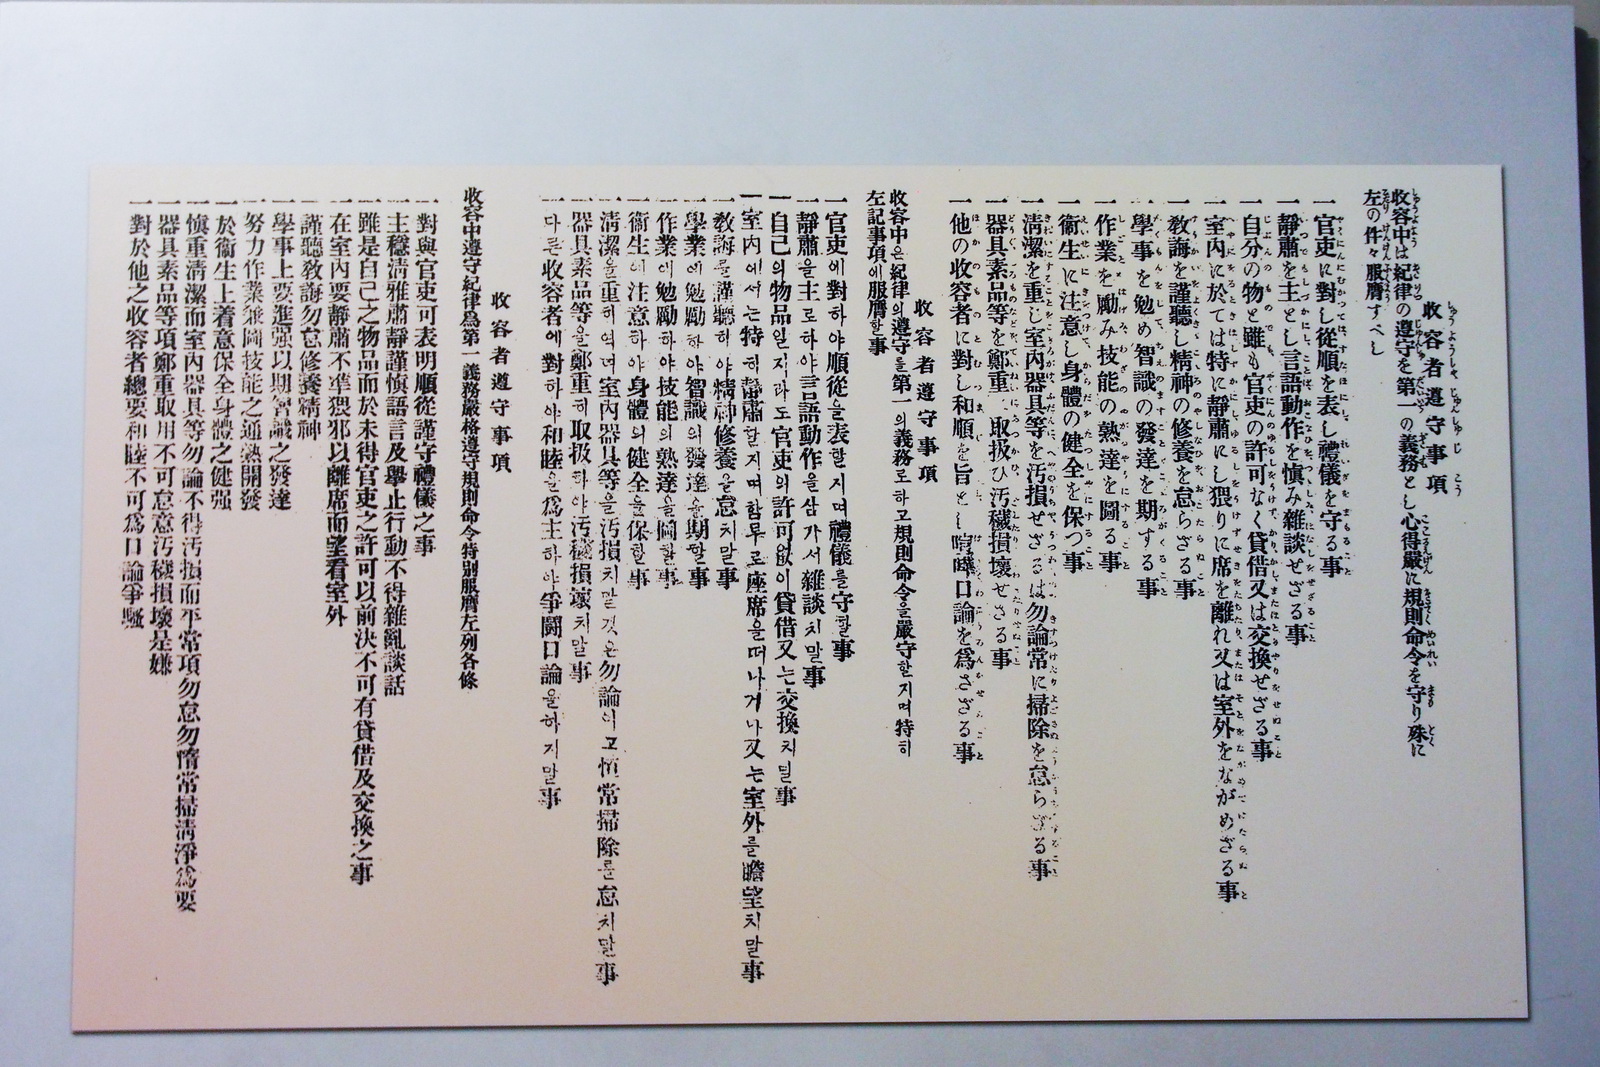 收容者遵守事項
收容中は紀律の遵守を第一の義務とし心得嚴に規則命令を守り殊に
左の件々服膺すべし
一官吏に對し從順を表し禮儀を守る事
一靜肅を主とし言語動作を愼み雜談せざる事
一自分の物と雖も官吏の許可なく貸借又は交換せざる事
一室內に於ては特に靜肅にし猥りに席を離れ又は室外をながめざる事
一敎誨を謹聽し精神の修養を怠らざる事
一學事を勉め智識の發達を期する事
一作業を勵み技能の熟達を圖る事
一衞生に注意し身體の健全を保つ事
一淸潔を重じ室內器具等を汚損せざるは勿論常に掃除を怠らざる事
一器具素品等を鄭重に取扱ひ汚穢損壞せざる事
一他の收容者に對し和順を旨とし喧嘩口論を爲さざる事
收容者遵守事項
收容中은紀律의遵守를第一의義務로하고規則命令을嚴守할지며特히
左記事項에服膺할事
一官吏에對하야順從을表할지며禮儀를守할事
一靜肅을主로하야言語動作을삼가서雜談치말事
一自己의物品일지라도官吏의許可없이貸借又는交換치말事
一室內에서는特히靜肅할지며함부로座席을떠나거나又는室外를瞻望치말事
一敎誨를謹聽하야精神修養을怠치말事
一學業에勉勵하야智識의發達을期할事
一作業에勉勵하야技能의熟達을圖할事
一衞生에注意하야身體의健全을保할事
一淸潔을重히여며室內器具等을汚損치말것은勿論이고恒常掃除를怠치말事
一器具素品等을鄭重히取扱하야汚穢損壞치말事
一다른收容者에對하야和睦을爲主하야爭鬪口論을하지말事
收容者遵守事項
收容中遵守紀律爲第一義務嚴格遵守規則命令特別服膺左列各條
一對與官吏可表明順從謹守禮儀之事
一主穩淸雅肅靜謹愼語言及擧止行動不得雜亂談話
一雖是自己之物品而於未得官吏之許可以前決不可有貸借及交換之事
一在室內要靜肅不準猥邪以離席而望看室外
一謹聽敎誨勿怠修養精神
一學事上要進强以期智識之發達
一努力作業兼圖技能之通熟開發
一於衞生上着意保全身體之健强
一愼重淸潔而室內器具等勿論不得汚損而平常項勿怠勿惰常掃淸淨爲要
一器具素品等項鄭重取用不可怠意汚穢損壞是嫌
一對於他之收容者總要和睦不可爲口論爭騷